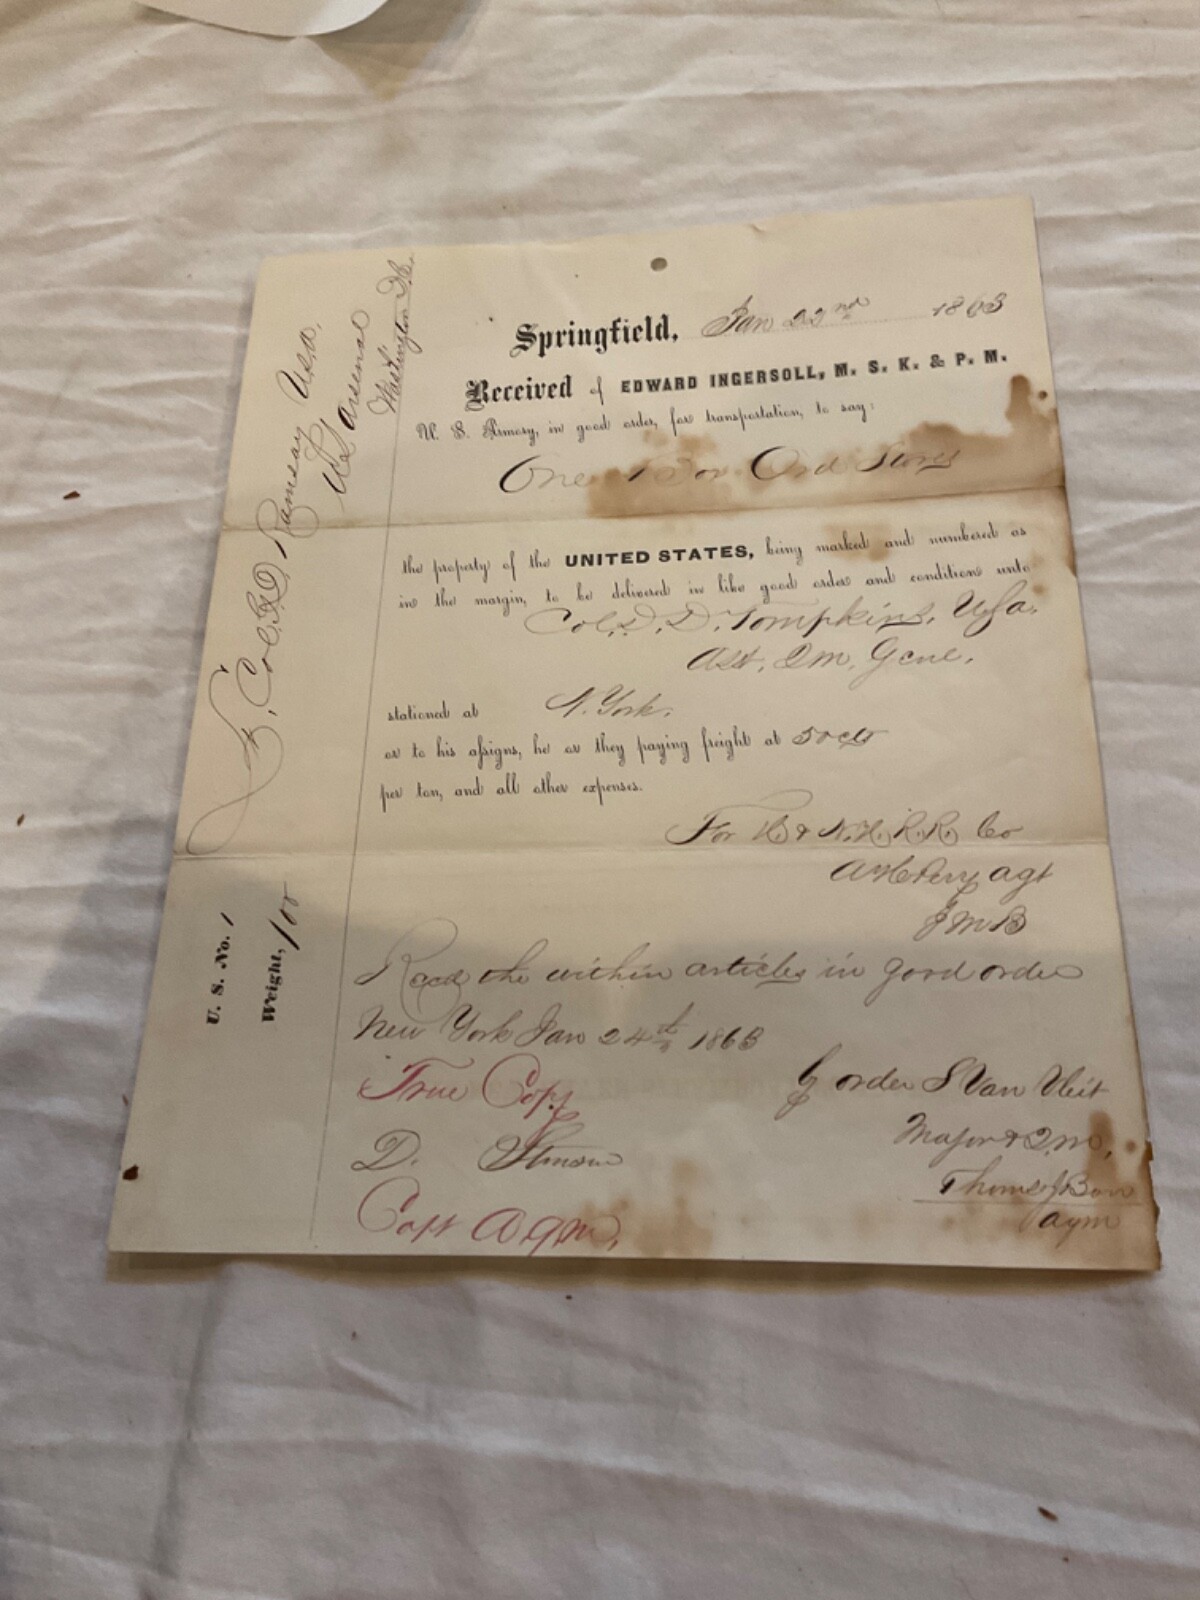 Springfield, Jan 22nd 1863
Received of EDWARD INGERSOLL, M. S. K. & P. M.
U. S. Armory, in good order, for transportation, to say:
One 1 Box Ord Stores
the property of the UNITED STATES, being marked and numbered as
in the margin, to be delivered in like good order and condition unto
Col. D. D. Tompkins. U.S.a.
Asst. Qm. Genl.
stationed at N. York.
or to his assigns, he or they paying freight at 50 cts
per ton, and all other expenses.
For H. & N.H. R.R. Co
agt
J M B
Recd the within articles in good order
New York Jan 24th 1863
By order S Van Vleit
Major & Q.M.
Thomas J
aqm
True Copy
D. Stinson
Capt A.Q.M.
Lt. Col. G. D. Ramsay U.S.A.
U S Arsenal
Washington D.C.
U. S. No. 1
Weight, 100